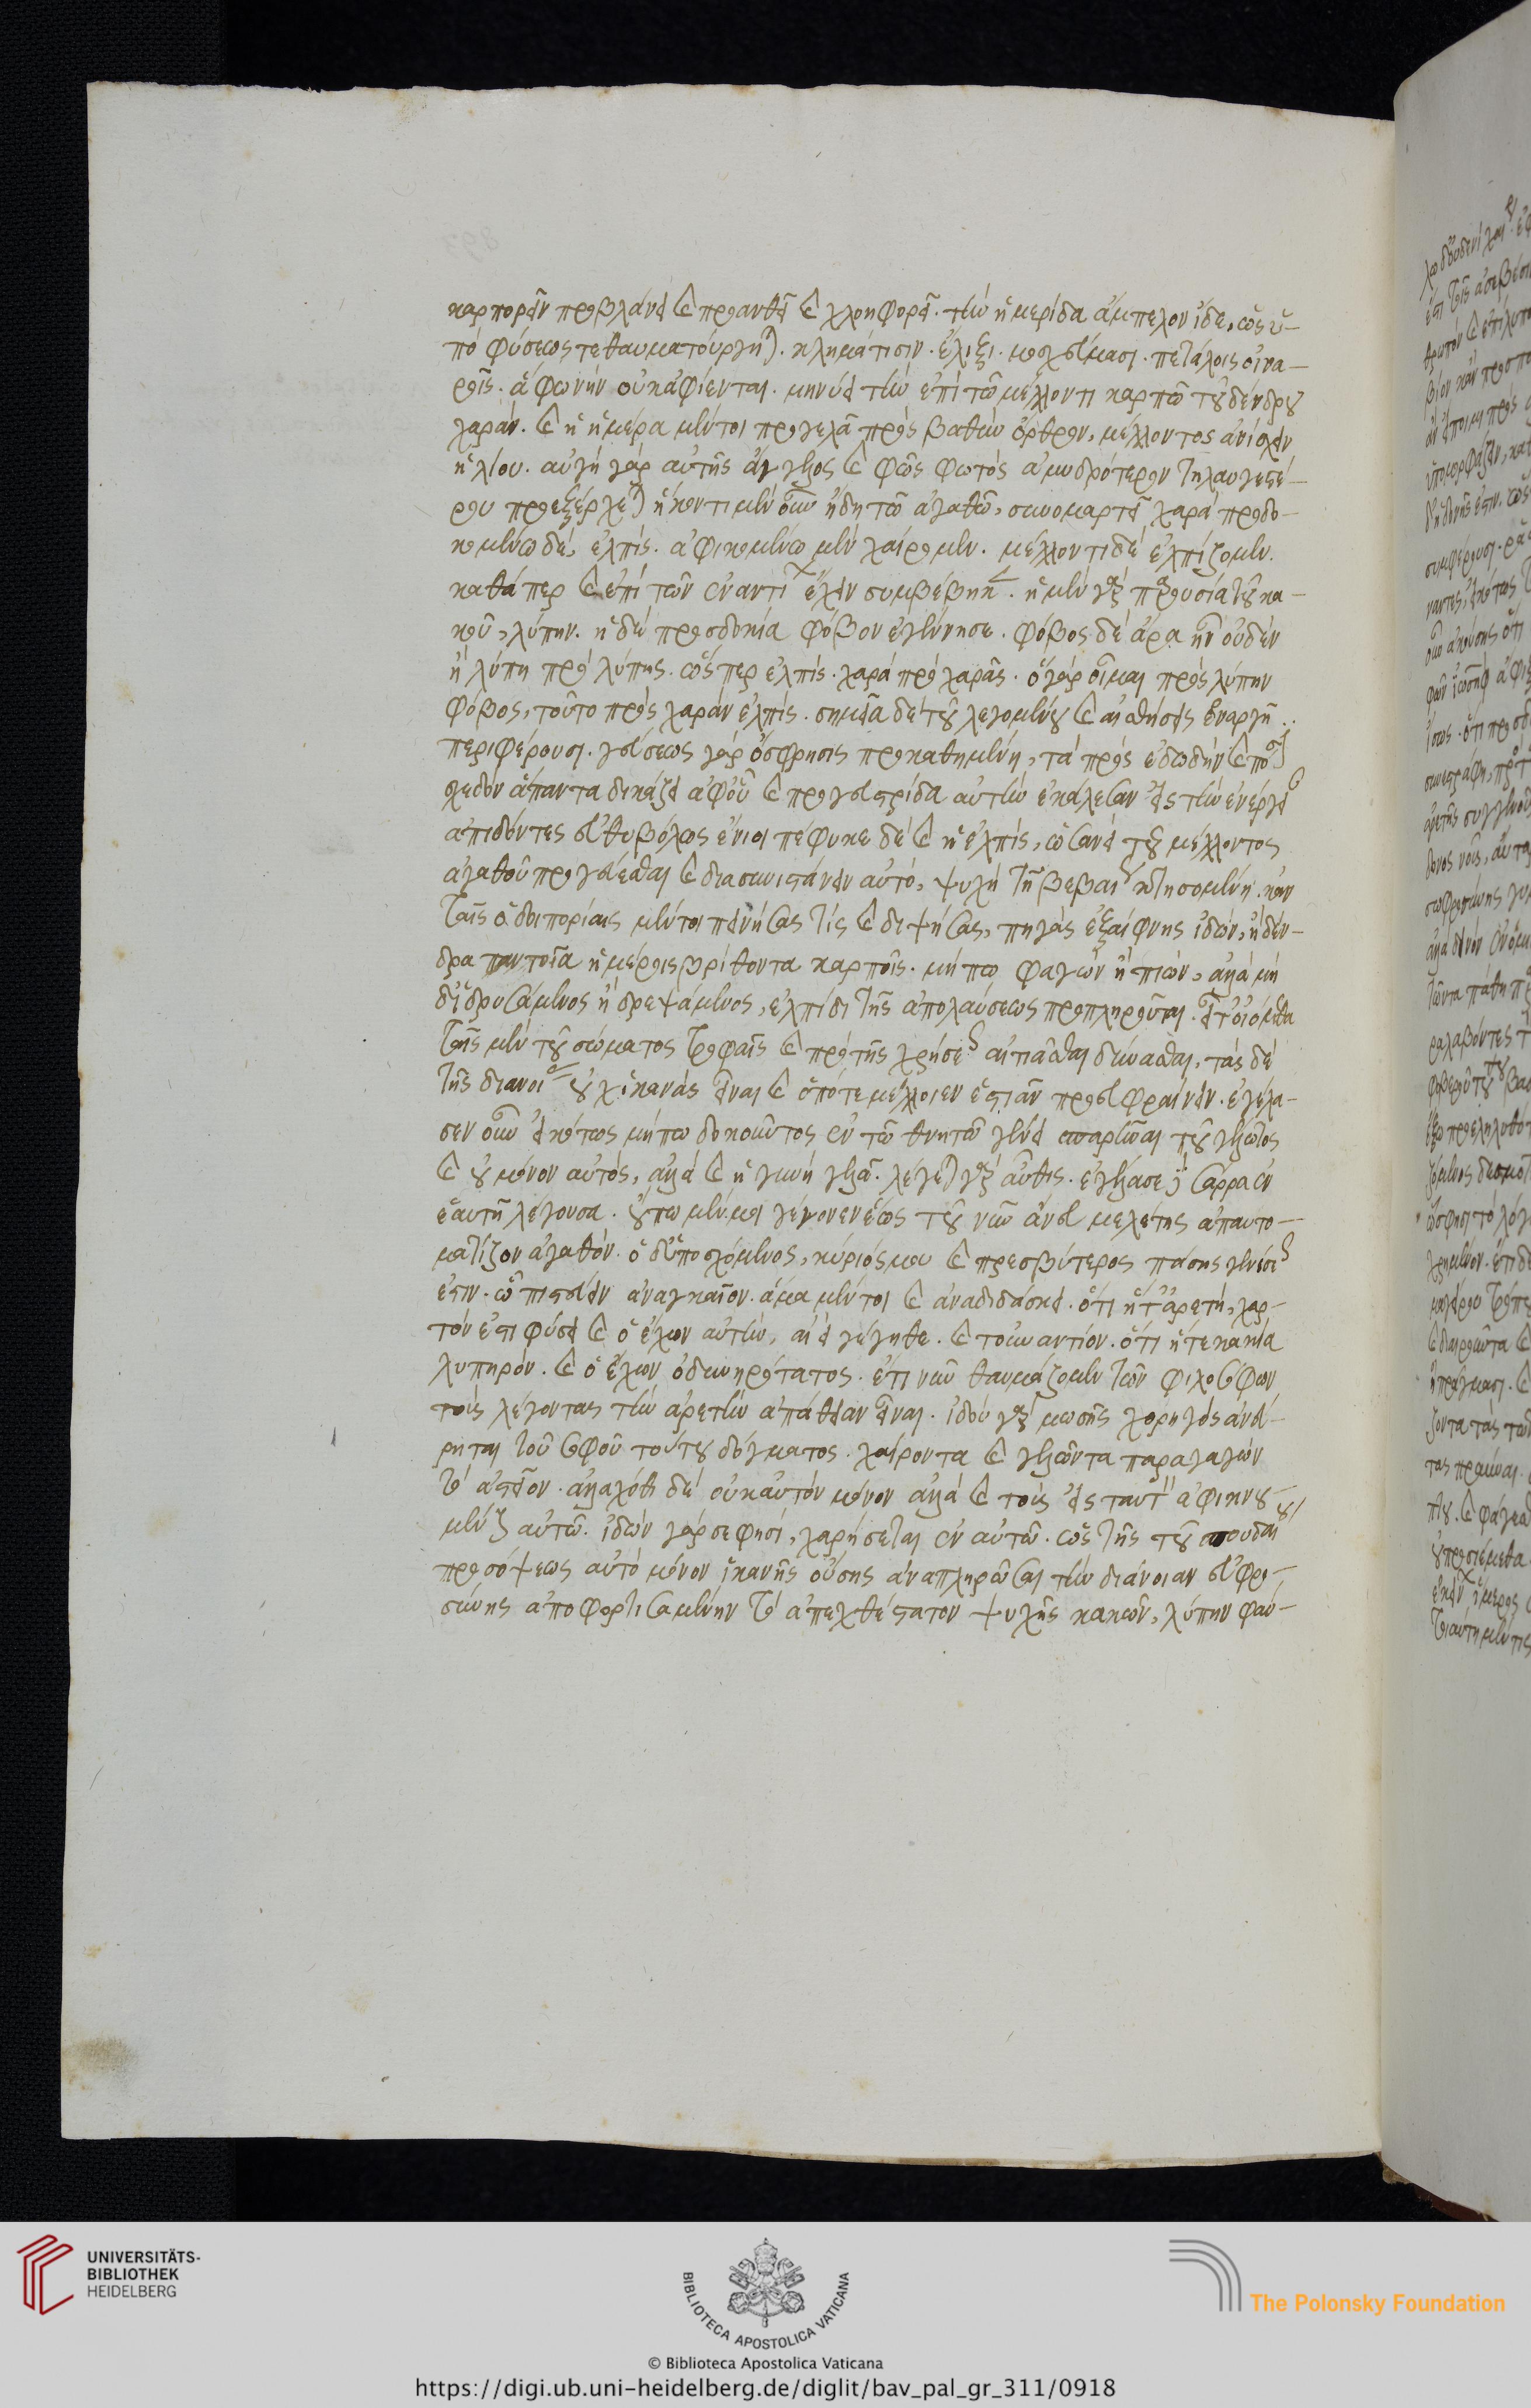 καρπορεῖν προβλάνει καὶ προανθεῖ καὶ χλοηφορεῖ. τὴν ἡμερίδα ἄμπελον ἴδε, ὡς ὑ-
πὸ φύσεως τεθαυματούργηται. κλημάτισιν. ἕλιξι. μοσχεύμασι. πετάλοις οἰνα-
ροῖς. ἃ φωνὴν οὐκ ἀφίενται. μηνύει τὴν ἐπὶ τῶ μέλλοντι καρπῶ τοῦ δένδρου
χαράν. καὶ ἡ ἡμέρα μέντοι προγελᾶ πρὸς βαθὺν ὄρθρον, μέλλοντος ἀνίσχειν
ἡλίου. αὐγὴ γὰρ αὐτῆς ἄγγελος καὶ φῶς φωτὸς ἀμυδρότερον τηλαυγεστέ-
ρου προεξέρχεται ἥκοντι μὲν οὖν ἤδη τῶ ἀγαθῶ, συνομαρτεῖ χαρὰ προσδο-
κομένω δὲ, ἐλπίς. ἀφικομένω μὲν χαίρομεν. μέλλοντι δὲ ἐλπίζομεν.
καθάπερ καὶ ἐπὶ τῶν ἐναντίων ἔχειν συμβέβηκεν. ἡ μὲν γὰρ παρουσία τοῦ κα-
κοῦ, λύπην. ἡ δὲ προσδοκία φόβον ἐγέννησε. φόβος δὲ ἄρα ἦν οὐδὲν
ἢ λύπη πρὸ λύπης. ὥσπερ ἐλπίς. χαρὰ πρὸ χαρᾶς. ὃ γὰρ οἶμαι πρὸς λύπην
φόβος, τοῦτο πρὸς χαρὰν ἐλπίς. σημεῖα δὲ τοῦ λεγομένου καὶ αἰσθήσεις ἐναργῆ.
περιφέρουσι. γεύσεως γὰρ ὄσφρησις προκαθημένη, τὰ πρὸς ἐδωδὴν καὶ πότον
σχεδὸν ἅπαντα δικάζει ἀφ' οὗ καὶ προγευστρίδα αὐτὴν ἐκάλεσαν εἰς τὴν ἐνέργειαν
ἀπιδόντες εὐθυβόλως ἔνιοι πέφυκε δὲ καὶ ἡ ἐλπὶς, ὡσανεὶ τοῦ μέλλοντος
ἀγαθοῦ προγεύεσθαι καὶ διασυνιστάνειν αὐτὸ, ψυχῆ τῆ βεβαίως κτησομένη. κἂν
ταῖς ὁδοιπορίαις μέντοι πεινήσας τὶς καὶ διψήσας, πηγὰς ἐξαίφνης ἰδὼν, ἢ δέν-
δρα παντοῖα ἡμέροις βρίθοντα καρποῖς. μήπω φαγὼν ἢ πιὼν, ἀλλὰ μὴ
δ' ἀρυσάμενος ἢ δρεψάμενος, ἐλπίδι τῆς ἀπολαύσεως προπληροῦται. εἶτ' οἰόμεθα
ταῖς μὲν τοῦ σώματος τροφαῖς καὶ πρὸ τῆς χρήσεως δύνασθαι, τὰς δὲ
τῆς διανοίας οὐχ ἱκανὰς εἶναι καὶ ὁπότε μέλλοιεν ἑστιᾶν προευφραίνειν. ἐγέλα-
σεν οὖν εἰκότως μήπω δοκοῦντος ἐν τῶ θνητῶ γένει σπαρῆναι τοῦ γέλωτος
καὶ οὐ μόνον αὐτὸς, ἀλλὰ καὶ ἡ γυνὴ γελᾶ. λέγεται γὰρ αὖθις. ἐγέλασε δὲ σάρρα ἐν
ἑαυτῆ λέγουσα. οὔπω μέν μοι γέγονεν ἕως τοῦ νῦν ἄνευ μελέτης ἀπαυτο-
ματίζον ἀγαθόν. ὁ δ' ὑποσχόμενος, κύριός μου καὶ πρεσβύτερος πάσης γενέσεως
ἐστιν. ὧ πιστεύειν ἀναγκαῖον. ἅμα μέντοι καὶ ἀναδιδάσκει. ὅτι ἥτ' ἀρετὴ, χαρ-
τόν ἐστι φύσει καὶ ὁ ἔχων αὐτὴν, αἰεὶ γέγηθε. καὶ τοὐναντίον. ὅτι ἥ τε κακία
λυπηρόν. καὶ ὁ ἔχων ὀδυνηρότατος. ἔτι νῦν θαυμάζομεν τῶν φιλοσόφων
τοὺς λέγοντας τὴν ἀρετὴν ἀπάθειαν εἶναι. ἰδοὺ γὰρ μωσῆς χορηγὸς ἀνεύ-
ρηται τοῦ σοφοῦ τούτου δόγματος. χαίροντα καὶ γελῶντα παραγαγὼν
τὸ ἀστεῖον. ἀλλαχόθι δὲ οὐκ αὐτὸν μόνον ἀλλὰ καὶ τοὺς εἰς ταυτ' ἀφικνου-
μένους αὐτῶ. ἰδὼν γάρ σε φησὶ, χαρήσεται ἐν αὐτῶ. ὡς τῆς τοῦ σπουδαίου
προσόψεως αὐτὸ μόνον ἱκανῆς οὔσης ἀναπληρῶσαι τὴν διάνοιαν εὐφρο-
σύνης ἀποφορτισαμένην τὸ ἀπεχθέστατον ψυχῆς κακῶν, λύπην φαύ-
UNIVERSITÄTS-
BIBLIOTHEK
HEIDELBERG
BIBLIOTECA APOSTOLICA VATICANA
The Polonsky Foundation
© Biblioteca Apostolica Vaticana
https://digi.ub.uni-heidelberg.de/diglit/bav_pal_gr_311/0918